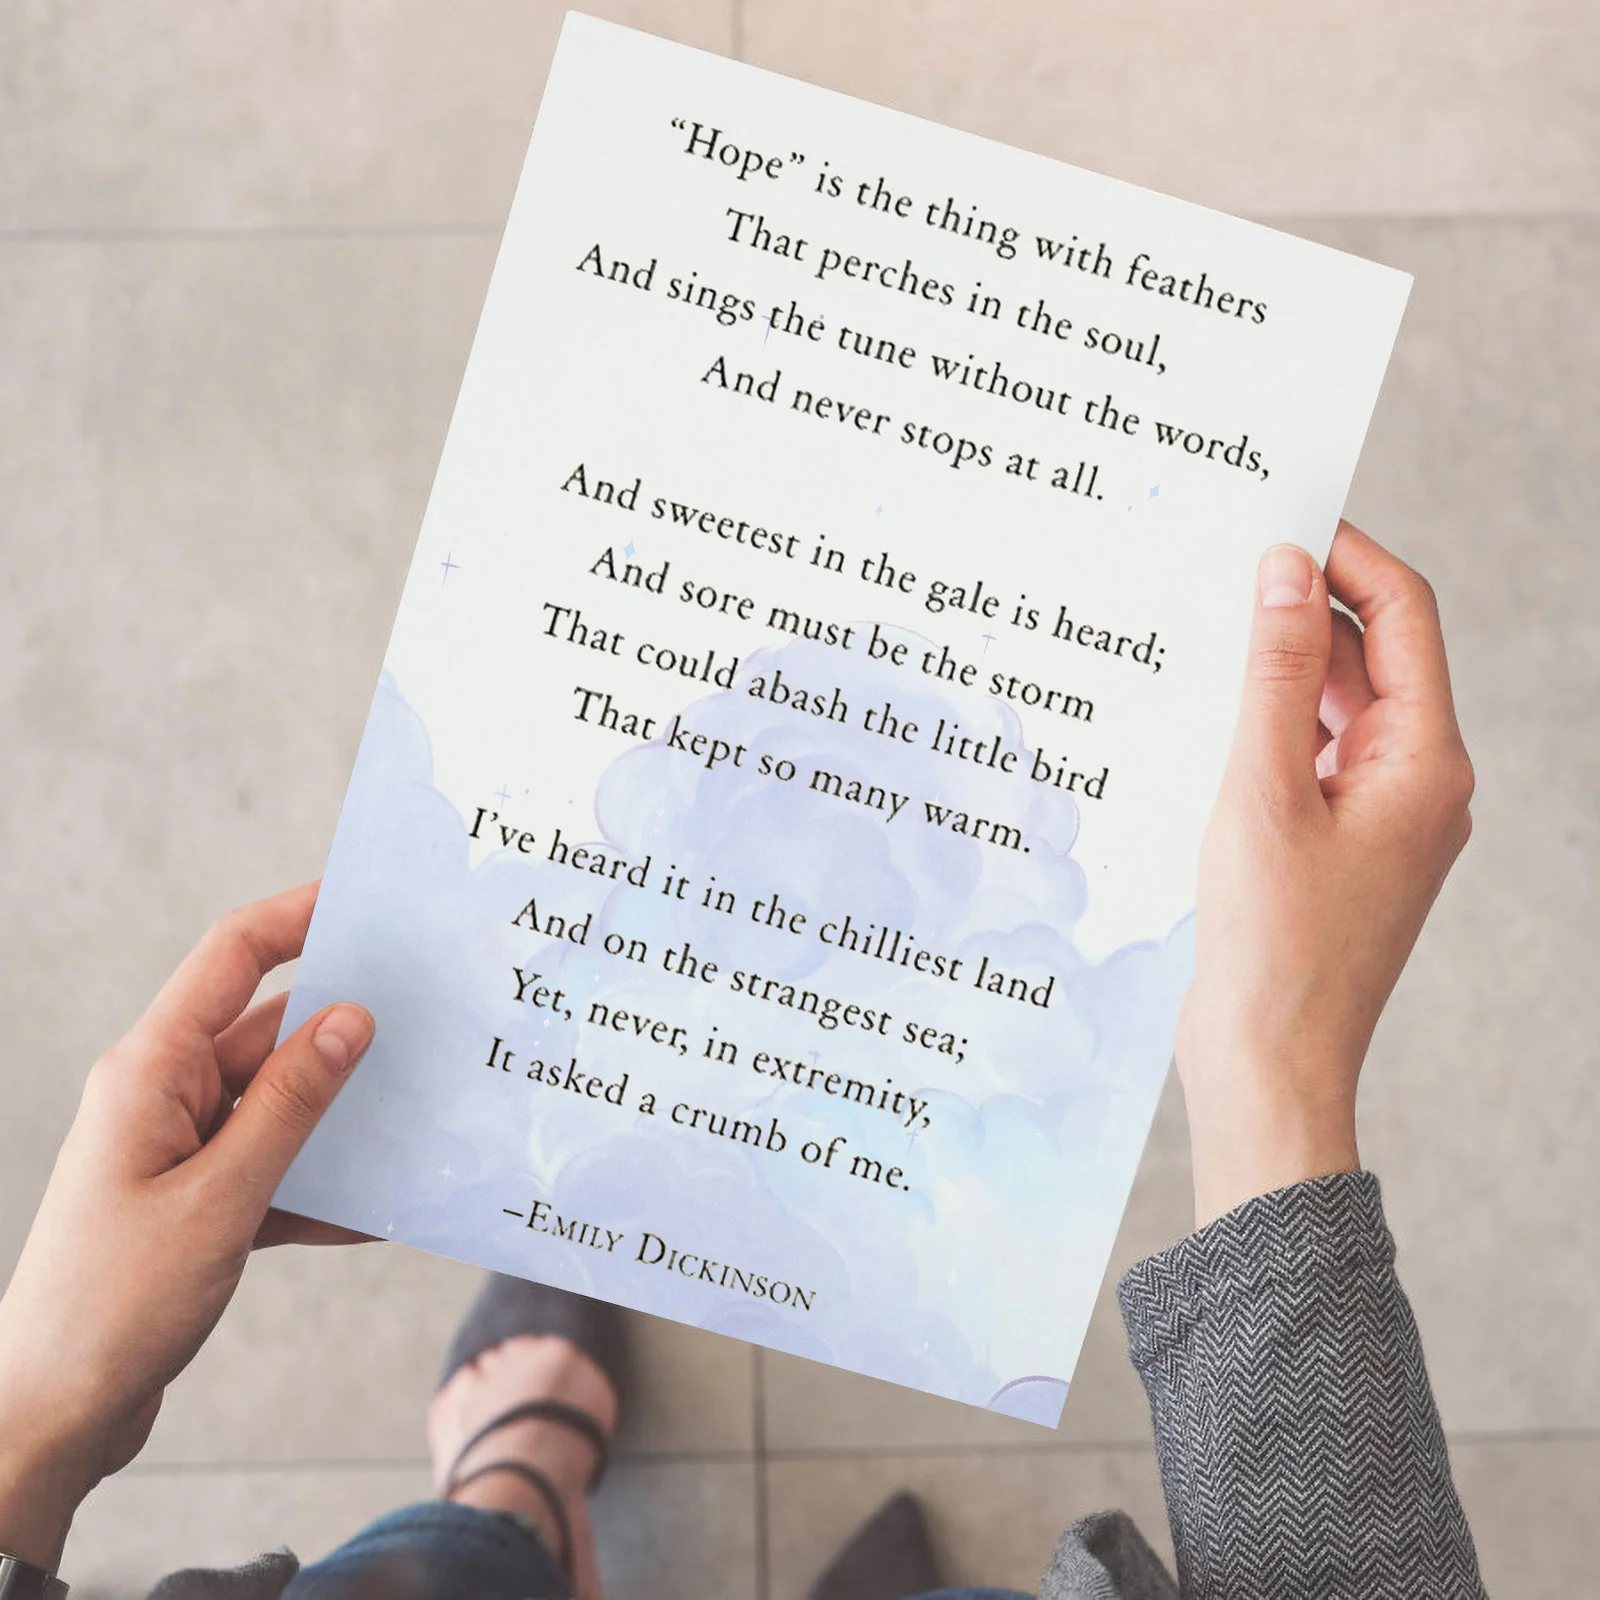 “Hope” is the thing with feathers
That perches in the soul,
And sings the tune without the words,
And never stops at all.
And sweetest in the gale is heard;
And sore must be the storm
That could abash the little bird
That kept so many warm.
I’ve heard it in the chilliest land
And on the strangest sea;
Yet, never, in extremity,
It asked a crumb of me.
–EMILY DICKINSON